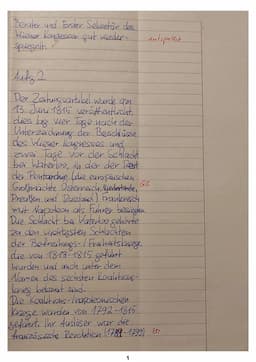 Berater und Erster Sekretär des
Wiener Kongresses gut wieder-
spiegelt.
Aufg. 2
Der Zeitungsartikel wurde am
13. Juni 1815 veröffentlicht,
dies lag vier Tage nach der
Unterzeichnung der Beschlüsse
des Wiener Kongresses und
zwei Tage vor der Schlacht
bei Waterloo, in der der Rest
der Pentarchie (die europäischen
Großmächte Österreich,
Preußen und Russland) Frankreich
mit Napoleon als Führer besiegten.
Die Schlacht bei Waterloo gehörte
zu den wichtigsten Schlachten
der Befreiungs-/Freiheitskriege,
die von 1813-1815 geführt
wurden und auch unter dem
Namen des sechsten Koalitions-
krieg bekannt sind.
Die Koalitions-/napoleonischen
Kriege wurden von 1792-1815
geführt. Ihr Auslöser war die
französische Revolution
1